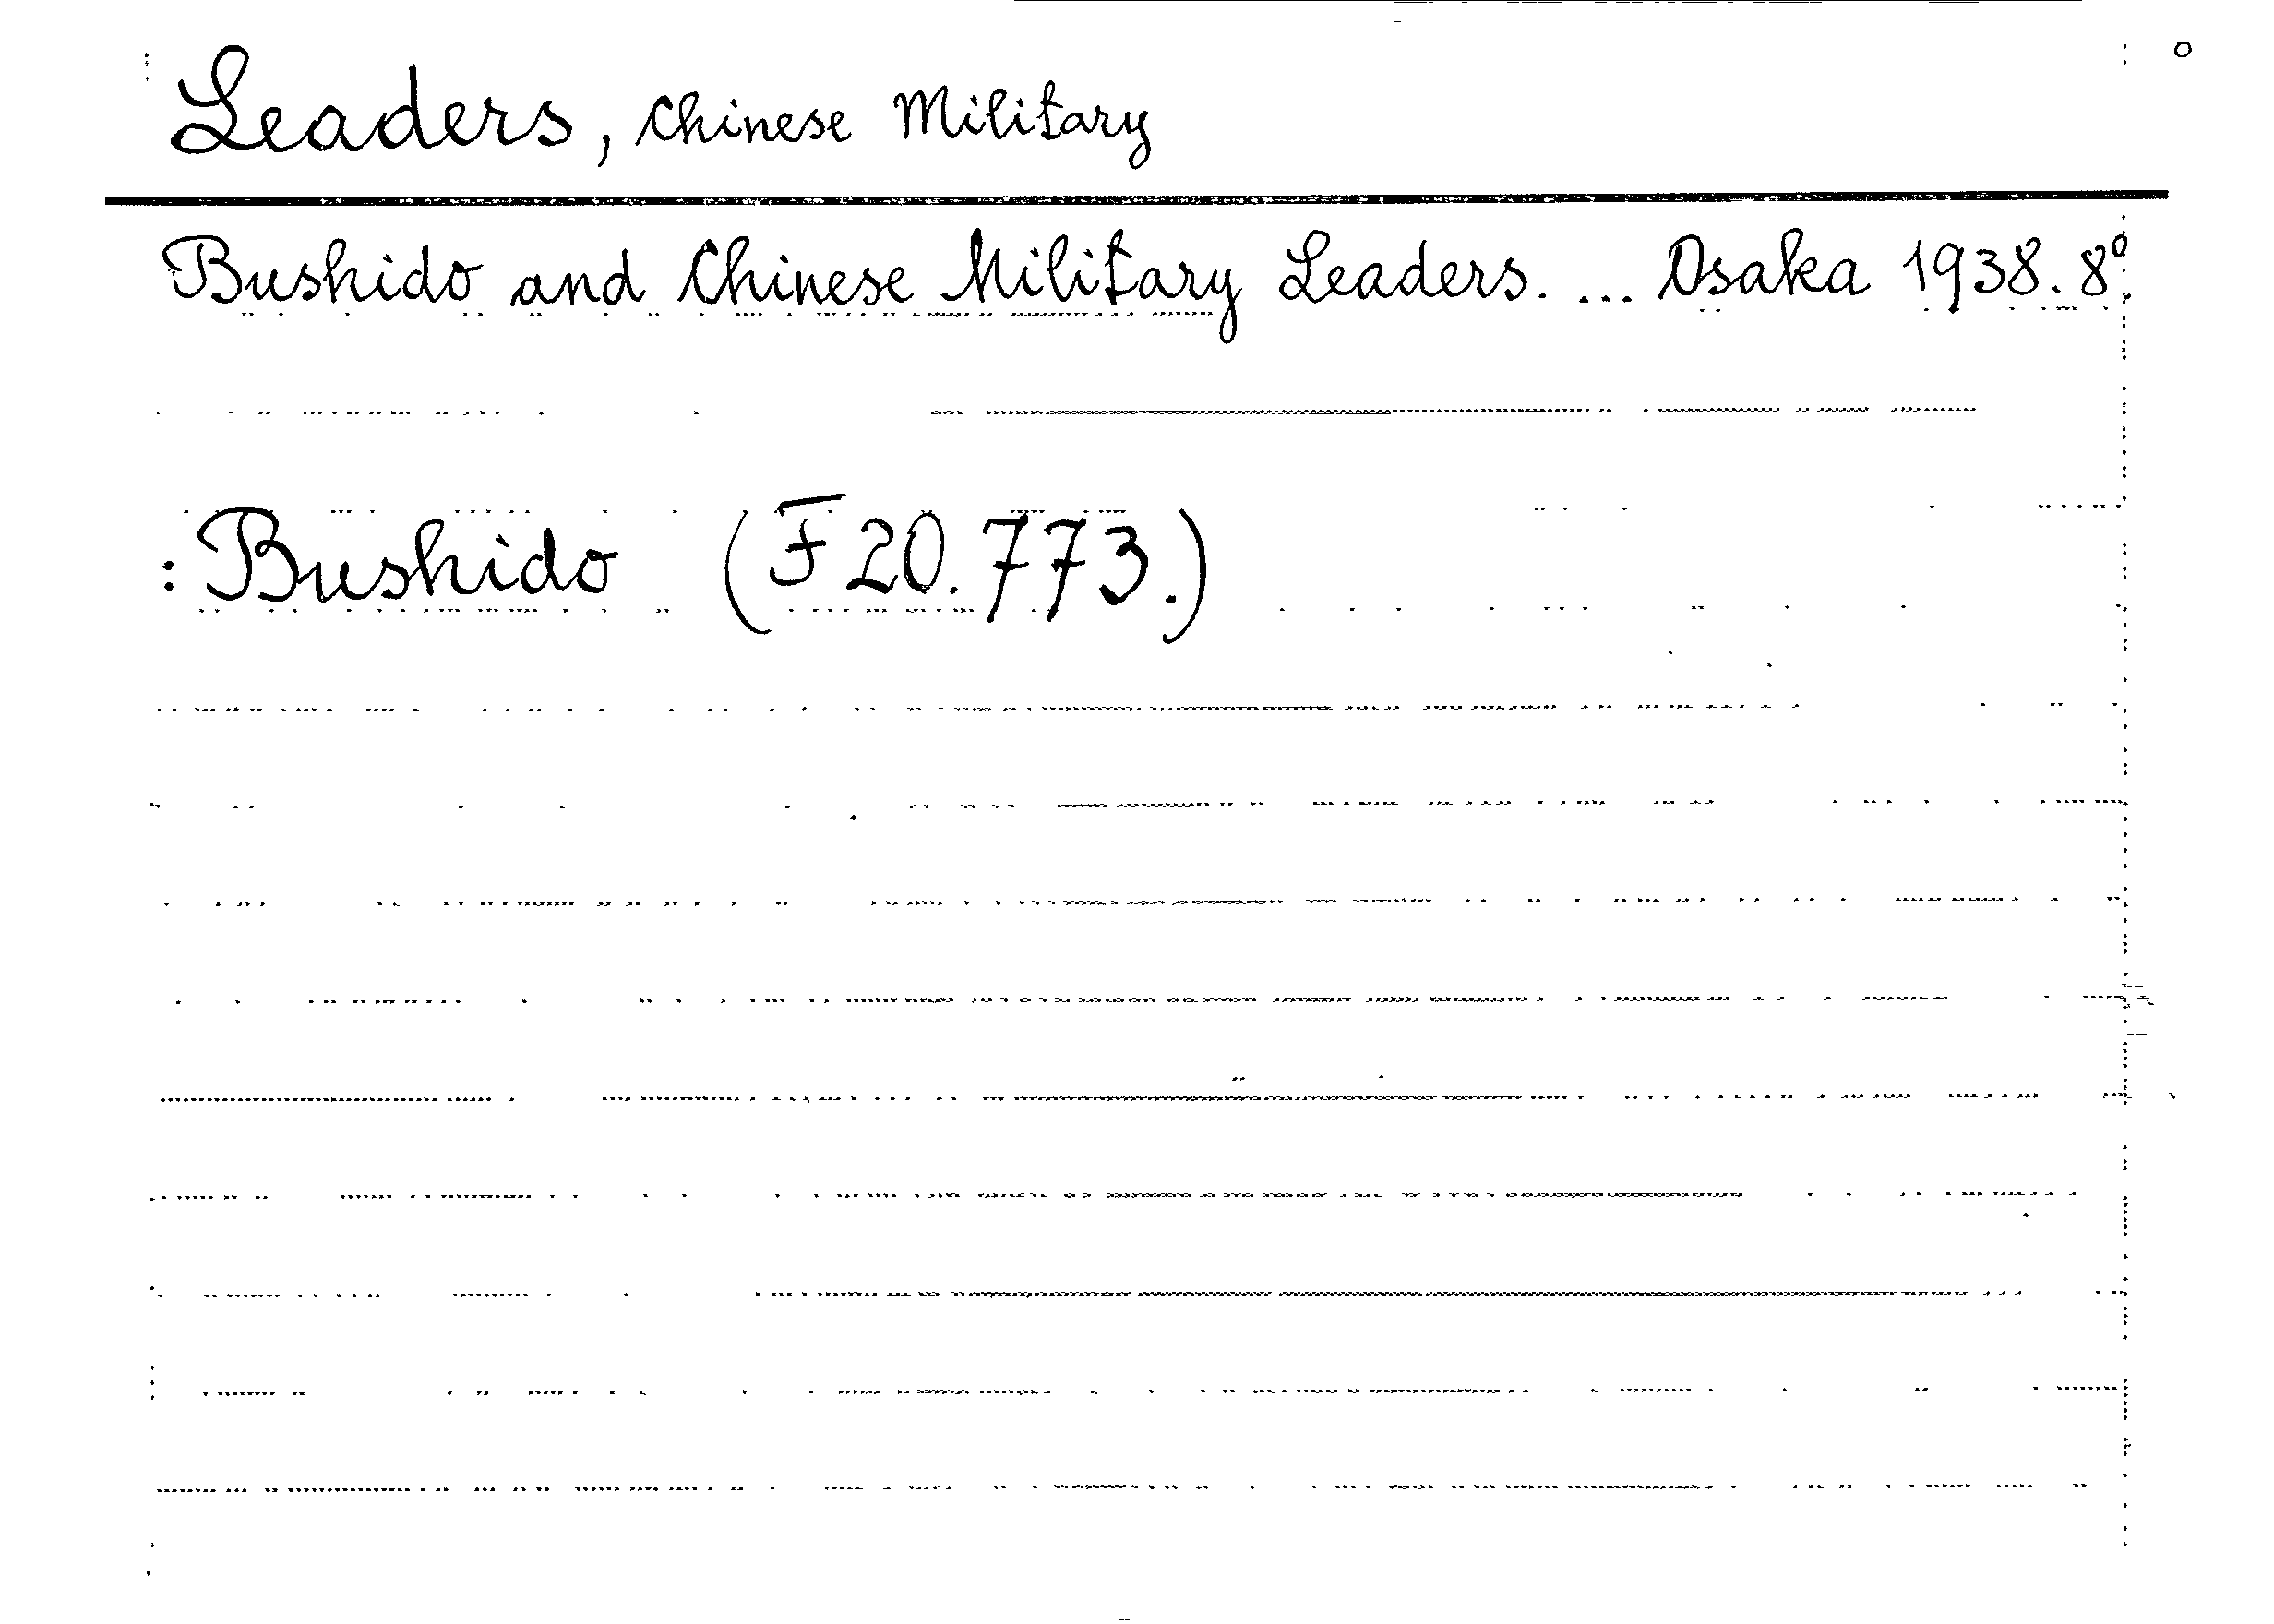 Leaders, Chinese Military
Bushido and Chinese Military Leaders. ... Osaka 1938. 8°.
: Bushido (F 20.773.)